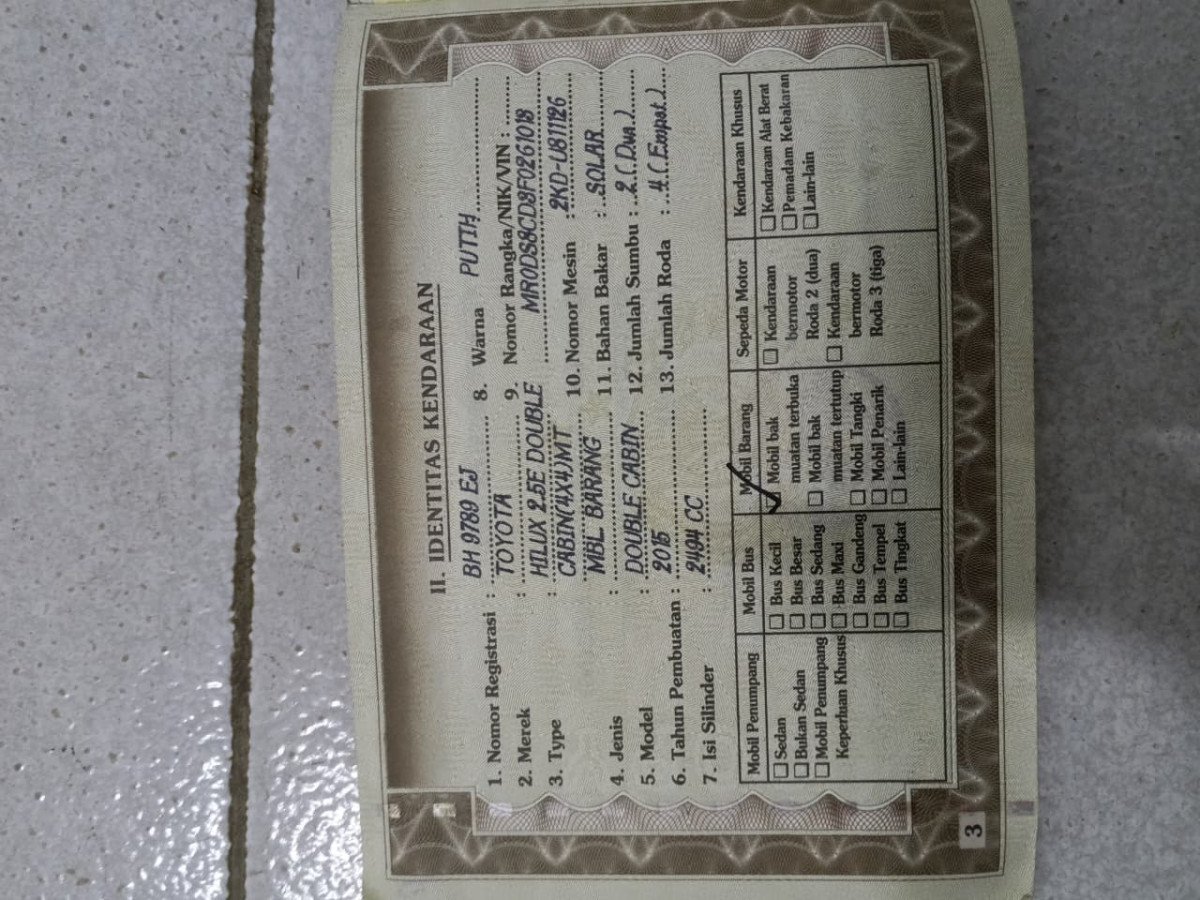 II. IDENTITAS KENDARAAN
1. Nomor Registrasi : BH 9789 EJ
2. Merek : TOYOTA
3. Type : HILUX 2.5E DOUBLE
CABIN(4X4)MT
4. Jenis : MBL BARANG
5. Model : DOUBLE CABIN
6. Tahun Pembuatan : 2015
7. Isi Silinder : 2494 CC
8. Warna PUTIH
9. Nomor Rangka/NIK/VIN :
MR0DS8CD8F0261018
10. Nomor Mesin : 2KD-U811126
11. Bahan Bakar : SOLAR
12. Jumlah Sumbu : 2 ( Dua )
13. Jumlah Roda : 4 ( Empat )
Mobil Penumpang
Sedan
Bukan Sedan
Mobil Penumpang
Keperluan Khusus
Mobil Bus
Bus Kecil
Bus Besar
Bus Sedang
Bus Maxi
Bus Gandeng
Bus Tempel
Bus Tingkat
Mobil Barang
Mobil bak
muatan terbuka
Mobil bak
muatan tertutup
Mobil Tangki
Mobil Penarik
Lain-lain
Sepeda Motor
Kendaraan
bermotor
Roda 2 (dua)
Kendaraan
bermotor
Roda 3 (tiga)
Kendaraan Khusus
Kendaraan Alat Berat
Pemadam Kebakaran
Lain-lain
3